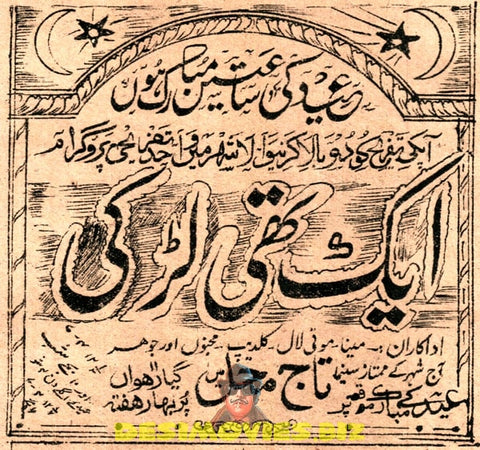 عید کی ساعتیں مبارک ہوں
آپکی تفریح کو دوبالا کرنیوالا شہر میں واحد تفریحی پروگرام
ایک تھی لڑکی
اداکاران:۔ مینا۔ موتی لال۔ کلدیپ۔ مجنوں اور جوھر
آج شہر کے ممتاز سینما تاج محل میں گیارھواں
عید کے مبارک موقعہ پر پربہار ھفتہ
DESIMOVIES.BIZ